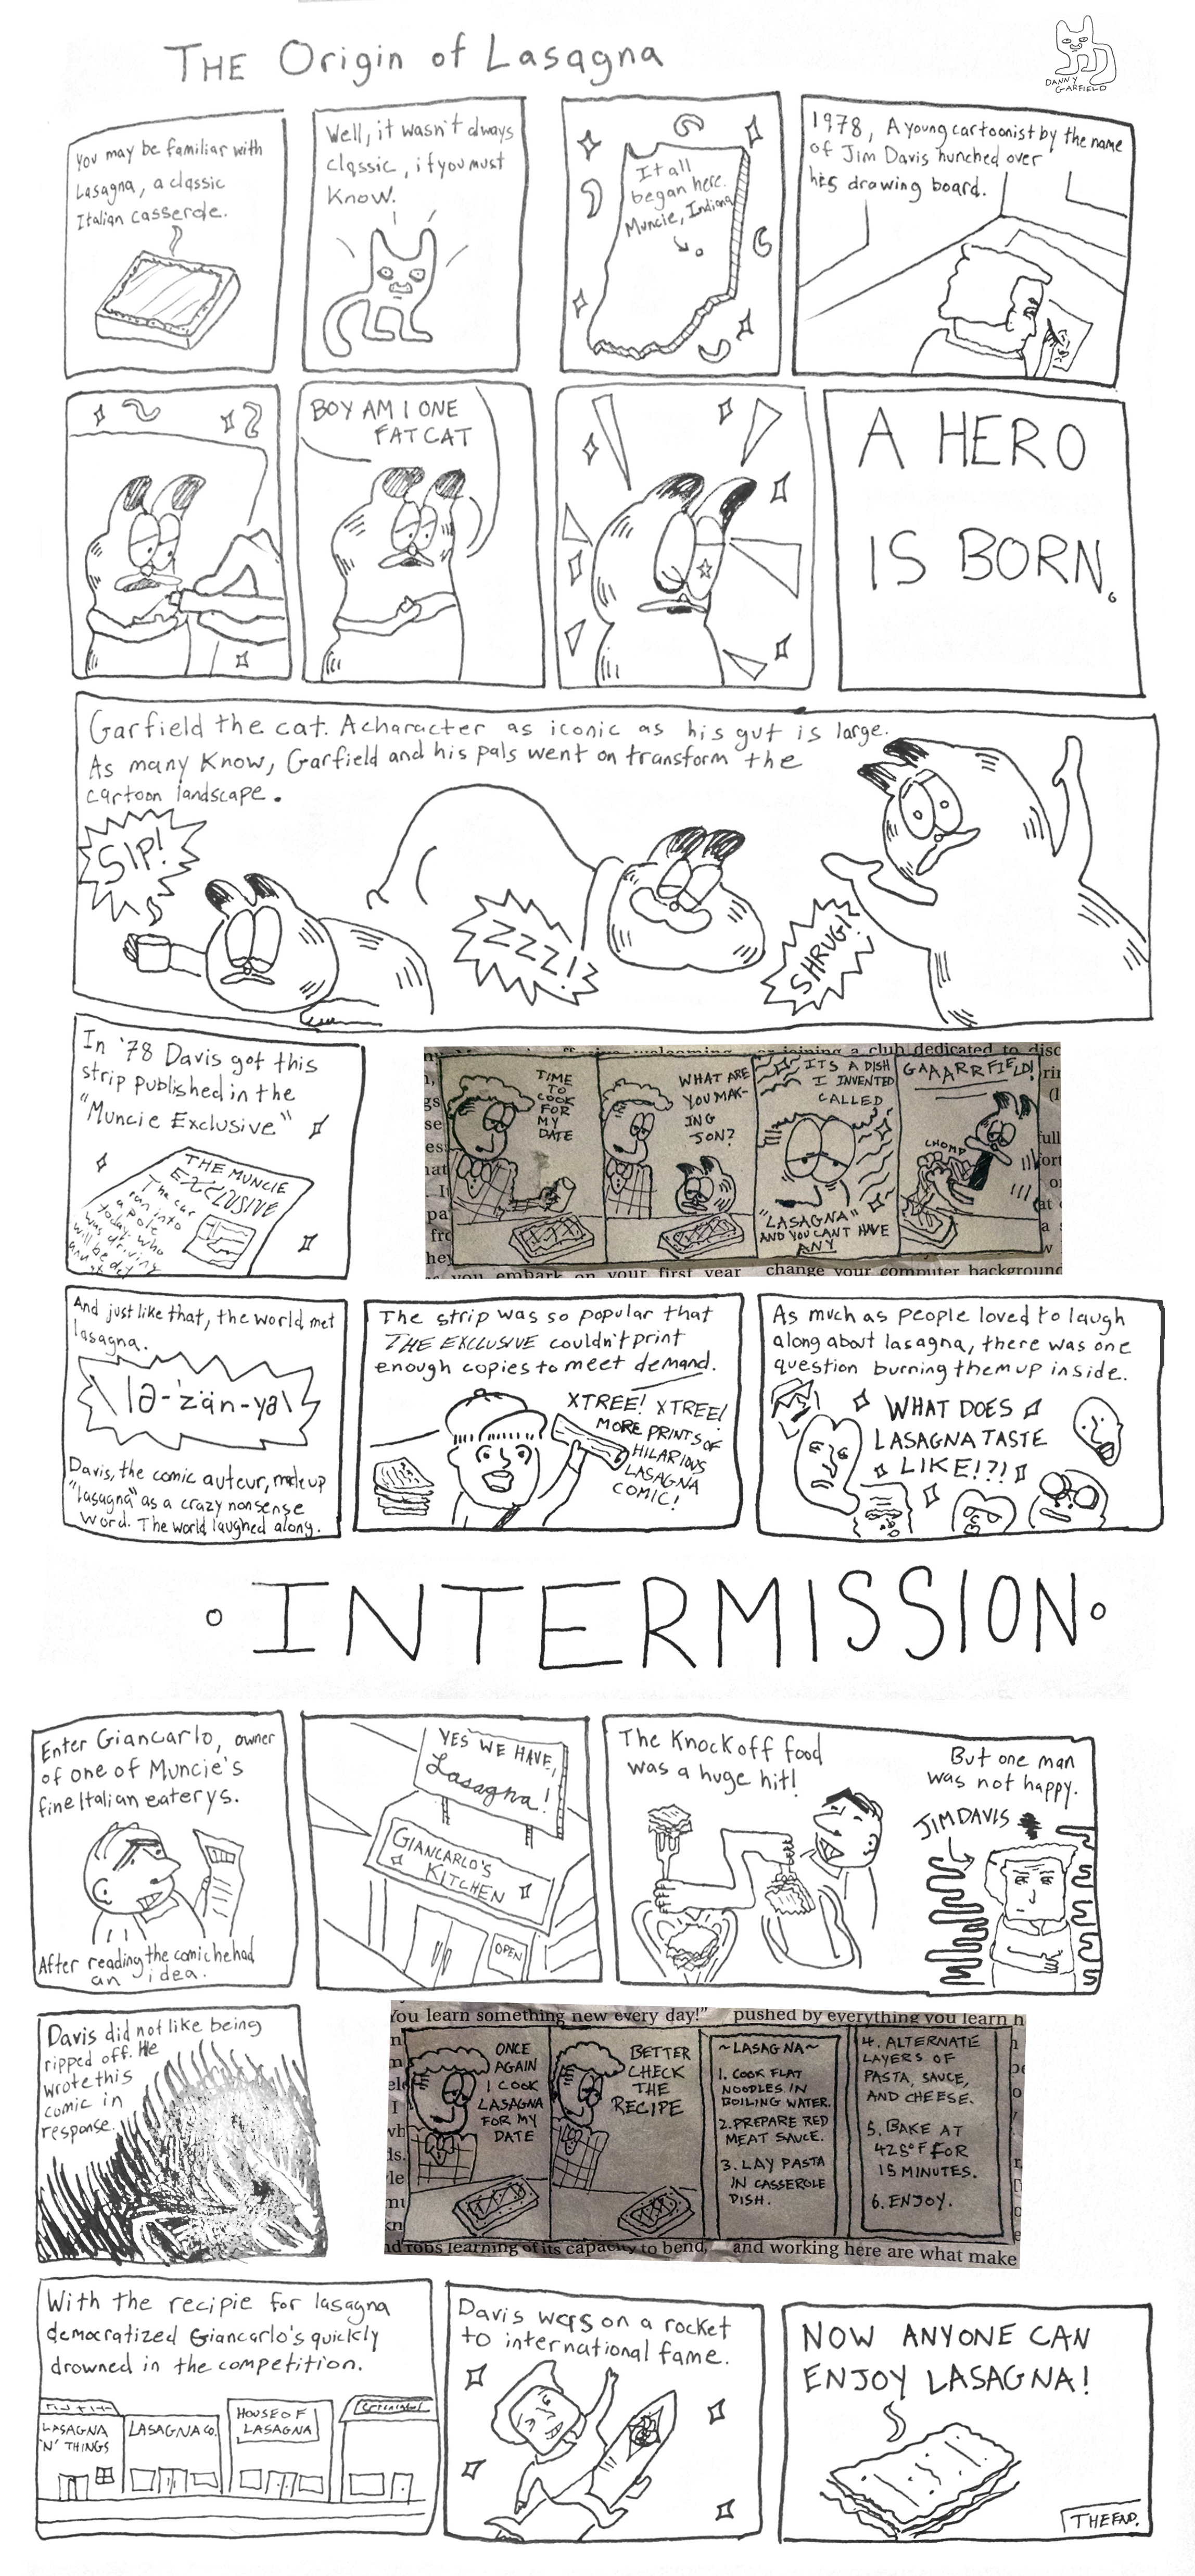 THE Origin of Lasagna
DANNY
GARFIELD
You may be familiar with
Lasagna, a classic
Italian casserole.
Well, it wasn't always
classic, if you must
Know.
It all
began here.
Muncie, Indiana
1978, A young cartoonist by the name
of Jim Davis hunched over
his drawing board.
BOY AM I ONE
FAT CAT
A HERO
IS BORN.
Garfield the cat. A character as iconic as his gut is large.
As many Know, Garfield and his pals went on transform the
cartoon landscape.
SIP!
ZZZ!
SHRUG!
In '78 Davis got this
strip published in the
"Muncie Exclusive"
THE MUNCIE
EXCLUSIVE
The car
ran into
a pole
today. who
was driving
will be
TIME
TO
COOK
FOR
MY
DATE
WHAT ARE
YOU MAK-
ING
JON?
ITS A DISH
I INVENTED
CALLED
"LASAGNA"
AND YOU CANT HAVE
ANY
GAAARRFIELD!
CHOMP
joining a club dedicated to disc
you embark on your first year
change your computer background
And just like that, the world met
lasagna.
\lə-ˈzän-yə\
Davis, the comic auteur, made up
"lasagna" as a crazy nonsense
word. The world laughed along.
The strip was so popular that
THE EXCLUSIVE couldn't print
enough copies to meet demand.
XTREE! XTREE!
MORE PRINTS OF
HILARIOUS
LASAGNA
COMIC!
As much as people loved to laugh
along about lasagna, there was one
question burning them up inside.
WHAT DOES
LASAGNA TASTE
LIKE!?!
INTERMISSION
Enter Giancarlo, owner
of one of Muncie's
fine Italian eaterys.
After reading the comic he had
an idea.
YES WE HAVE
Lasagna!
GIANCARLO'S
KITCHEN
OPEN
The Knockoff food
was a huge hit!
But one man
was not happy.
JIM DAVIS
Davis did not like being
ripped off. He
wrote this
comic in
response.
You learn something new every day!"
pushed by everything you learn h
ONCE
AGAIN
I COOK
LASAGNA
FOR MY
DATE
BETTER
CHECK
THE
RECIPE
~LASAGNA~
1. COOK FLAT
NOODLES IN
BOILING WATER.
2. PREPARE RED
MEAT SAUCE.
3. LAY PASTA
IN CASSEROLE
DISH.
4. ALTERNATE
LAYERS OF
PASTA, SAUCE,
AND CHEESE.
5. BAKE AT
425°F FOR
15 MINUTES.
6. ENJOY.
learning of its capacity to bend,
and working here are what make
With the recipie for lasagna
democratized Giancarlo's quickly
drowned in the competition.
LASAGNA
'N' THINGS
LASAGNA CO.
HOUSE OF
LASAGNA
Davis was on a rocket
to international fame.
NOW ANYONE CAN
ENJOY LASAGNA!
THE END.